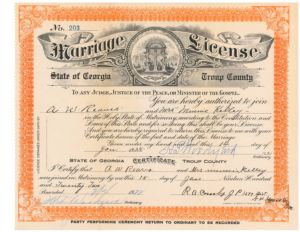 No. 203
Marriage License
State of Georgia Troup County
To any Judge, Justice of the Peace, or Minister of the Gospel.
You are hereby authorized to join
A W Reaves and Mrs Minnie Kelley
in the Holy State of Matrimony according to the Constitution and
Laws of this State and for so doing this shall be your License
And you are hereby required to return this License to me with your
Certificate hereon of the fact and date of the Marriage
Given under my hand and seal this
State of Georgia Certificate Troup County
I Certify that A W Reaves and Mrs Minnie Kelley
were joined in Matrimony by me this day of Nineteen Hundred
and Twenty Two
Party performing ceremony return to Ordinary to be recorded